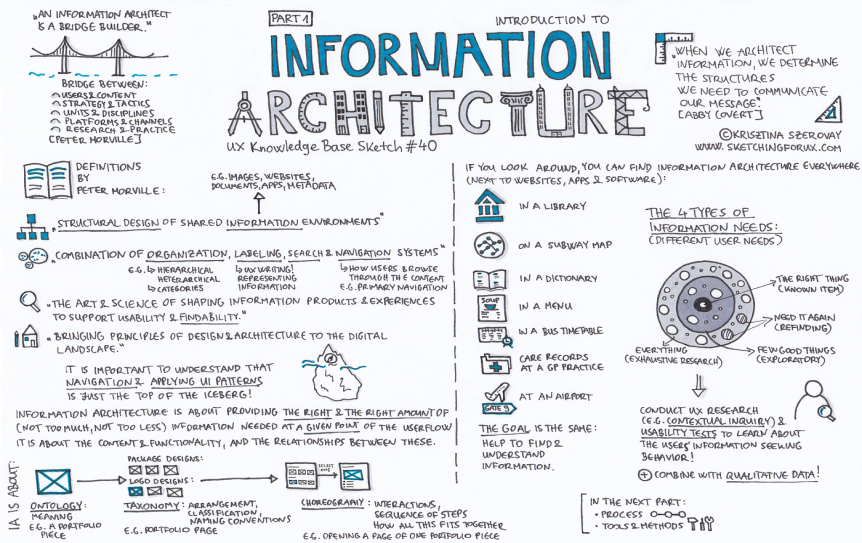 „AN INFORMATION ARCHITECT
IS A BRIDGE BUILDER."
BRIDGE BETWEEN:
USERS & CONTENT
STRATEGY & TACTICS
UNITS & DISCIPLINES
PLATFORMS & CHANNELS
RESEARCH & PRACTICE
[PETER MORVILLE]
PART 1
INTRODUCTION TO
INFORMATION
ARCHITECTURE
UX Knowledge Base Sketch #40
„WHEN WE ARCHITECT
INFORMATION, WE DETERMINE
THE STRUCTURES
WE NEED TO COMMUNICATE
OUR MESSAGE."
[ABBY COVERT]
©KRISZTINA SZEROVAY
WWW.SKETCHINGFORUX.COM
DEFINITIONS
BY
PETER MORVILLE:
E.G. IMAGES, WEBSITES,
DOCUMENTS, APPS, METADATA
„STRUCTURAL DESIGN OF SHARED INFORMATION ENVIRONMENTS"
„COMBINATION OF ORGANIZATION, LABELING, SEARCH & NAVIGATION SYSTEMS"
E.G. HIERARCHICAL
HETERARCHICAL
CATEGORIES
UX WRITING!
REPRESENTING
INFORMATION
HOW USERS BROWSE
THROUGH THE CONTENT
E.G. PRIMARY NAVIGATION
„THE ART & SCIENCE OF SHAPING INFORMATION PRODUCTS & EXPERIENCES
TO SUPPORT USABILITY & FINDABILITY."
„BRINGING PRINCIPLES OF DESIGN & ARCHITECTURE TO THE DIGITAL
LANDSCAPE."
IT IS IMPORTANT TO UNDERSTAND THAT
NAVIGATION & APPLYING UI PATTERNS
IS JUST THE TOP OF THE ICEBERG!
INFORMATION ARCHITECTURE IS ABOUT PROVIDING THE RIGHT & THE RIGHT AMOUNT OF
(NOT TOO MUCH, NOT TOO LESS) INFORMATION NEEDED AT A GIVEN POINT OF THE USERFLOW
IT IS ABOUT THE CONTENT & FUNCTIONALITY, AND THE RELATIONSHIPS BETWEEN THESE.
IA IS ABOUT:
ONTOLOGY:
MEANING
E.G. A PORTFOLIO
PIECE
PACKAGE DESIGNS:
LOGO DESIGNS:
TAXONOMY: ARRANGEMENT,
CLASSIFICATION,
NAMING CONVENTIONS
E.G. PORTFOLIO PAGE
SELECT
ONE
CHOREOGRAPHY: INTERACTIONS,
SEQUENCE OF STEPS
HOW ALL THIS FITS TOGETHER
E.G. OPENING A PAGE OF ONE PORTFOLIO PIECE
IF YOU LOOK AROUND, YOU CAN FIND INFORMATION ARCHITECTURE EVERYWHERE
(NEXT TO WEBSITES, APPS & SOFTWARE):
IN A LIBRARY
ON A SUBWAY MAP
IN A DICTIONARY
SOUP
IN A MENU
IN A BUS TIMETABLE
CARE RECORDS
AT A GP PRACTICE
AT AN AIRPORT
GATE 9
THE GOAL IS THE SAME:
HELP TO FIND &
UNDERSTAND
INFORMATION.
THE 4 TYPES OF
INFORMATION NEEDS:
(DIFFERENT USER NEEDS)
THE RIGHT THING
(KNOWN ITEM)
NEED IT AGAIN
(REFINDING)
FEW GOOD THINGS
(EXPLORATORY)
EVERYTHING
(EXHAUSTIVE RESEARCH)
CONDUCT UX RESEARCH
(E.G. CONTEXTUAL INQUIRY) &
USABILITY TESTS TO LEARN ABOUT
THE USERS' INFORMATION SEEKING
BEHAVIOR!
+ COMBINE WITH QUALITATIVE DATA!
IN THE NEXT PART:
• PROCESS
• TOOLS & METHODS